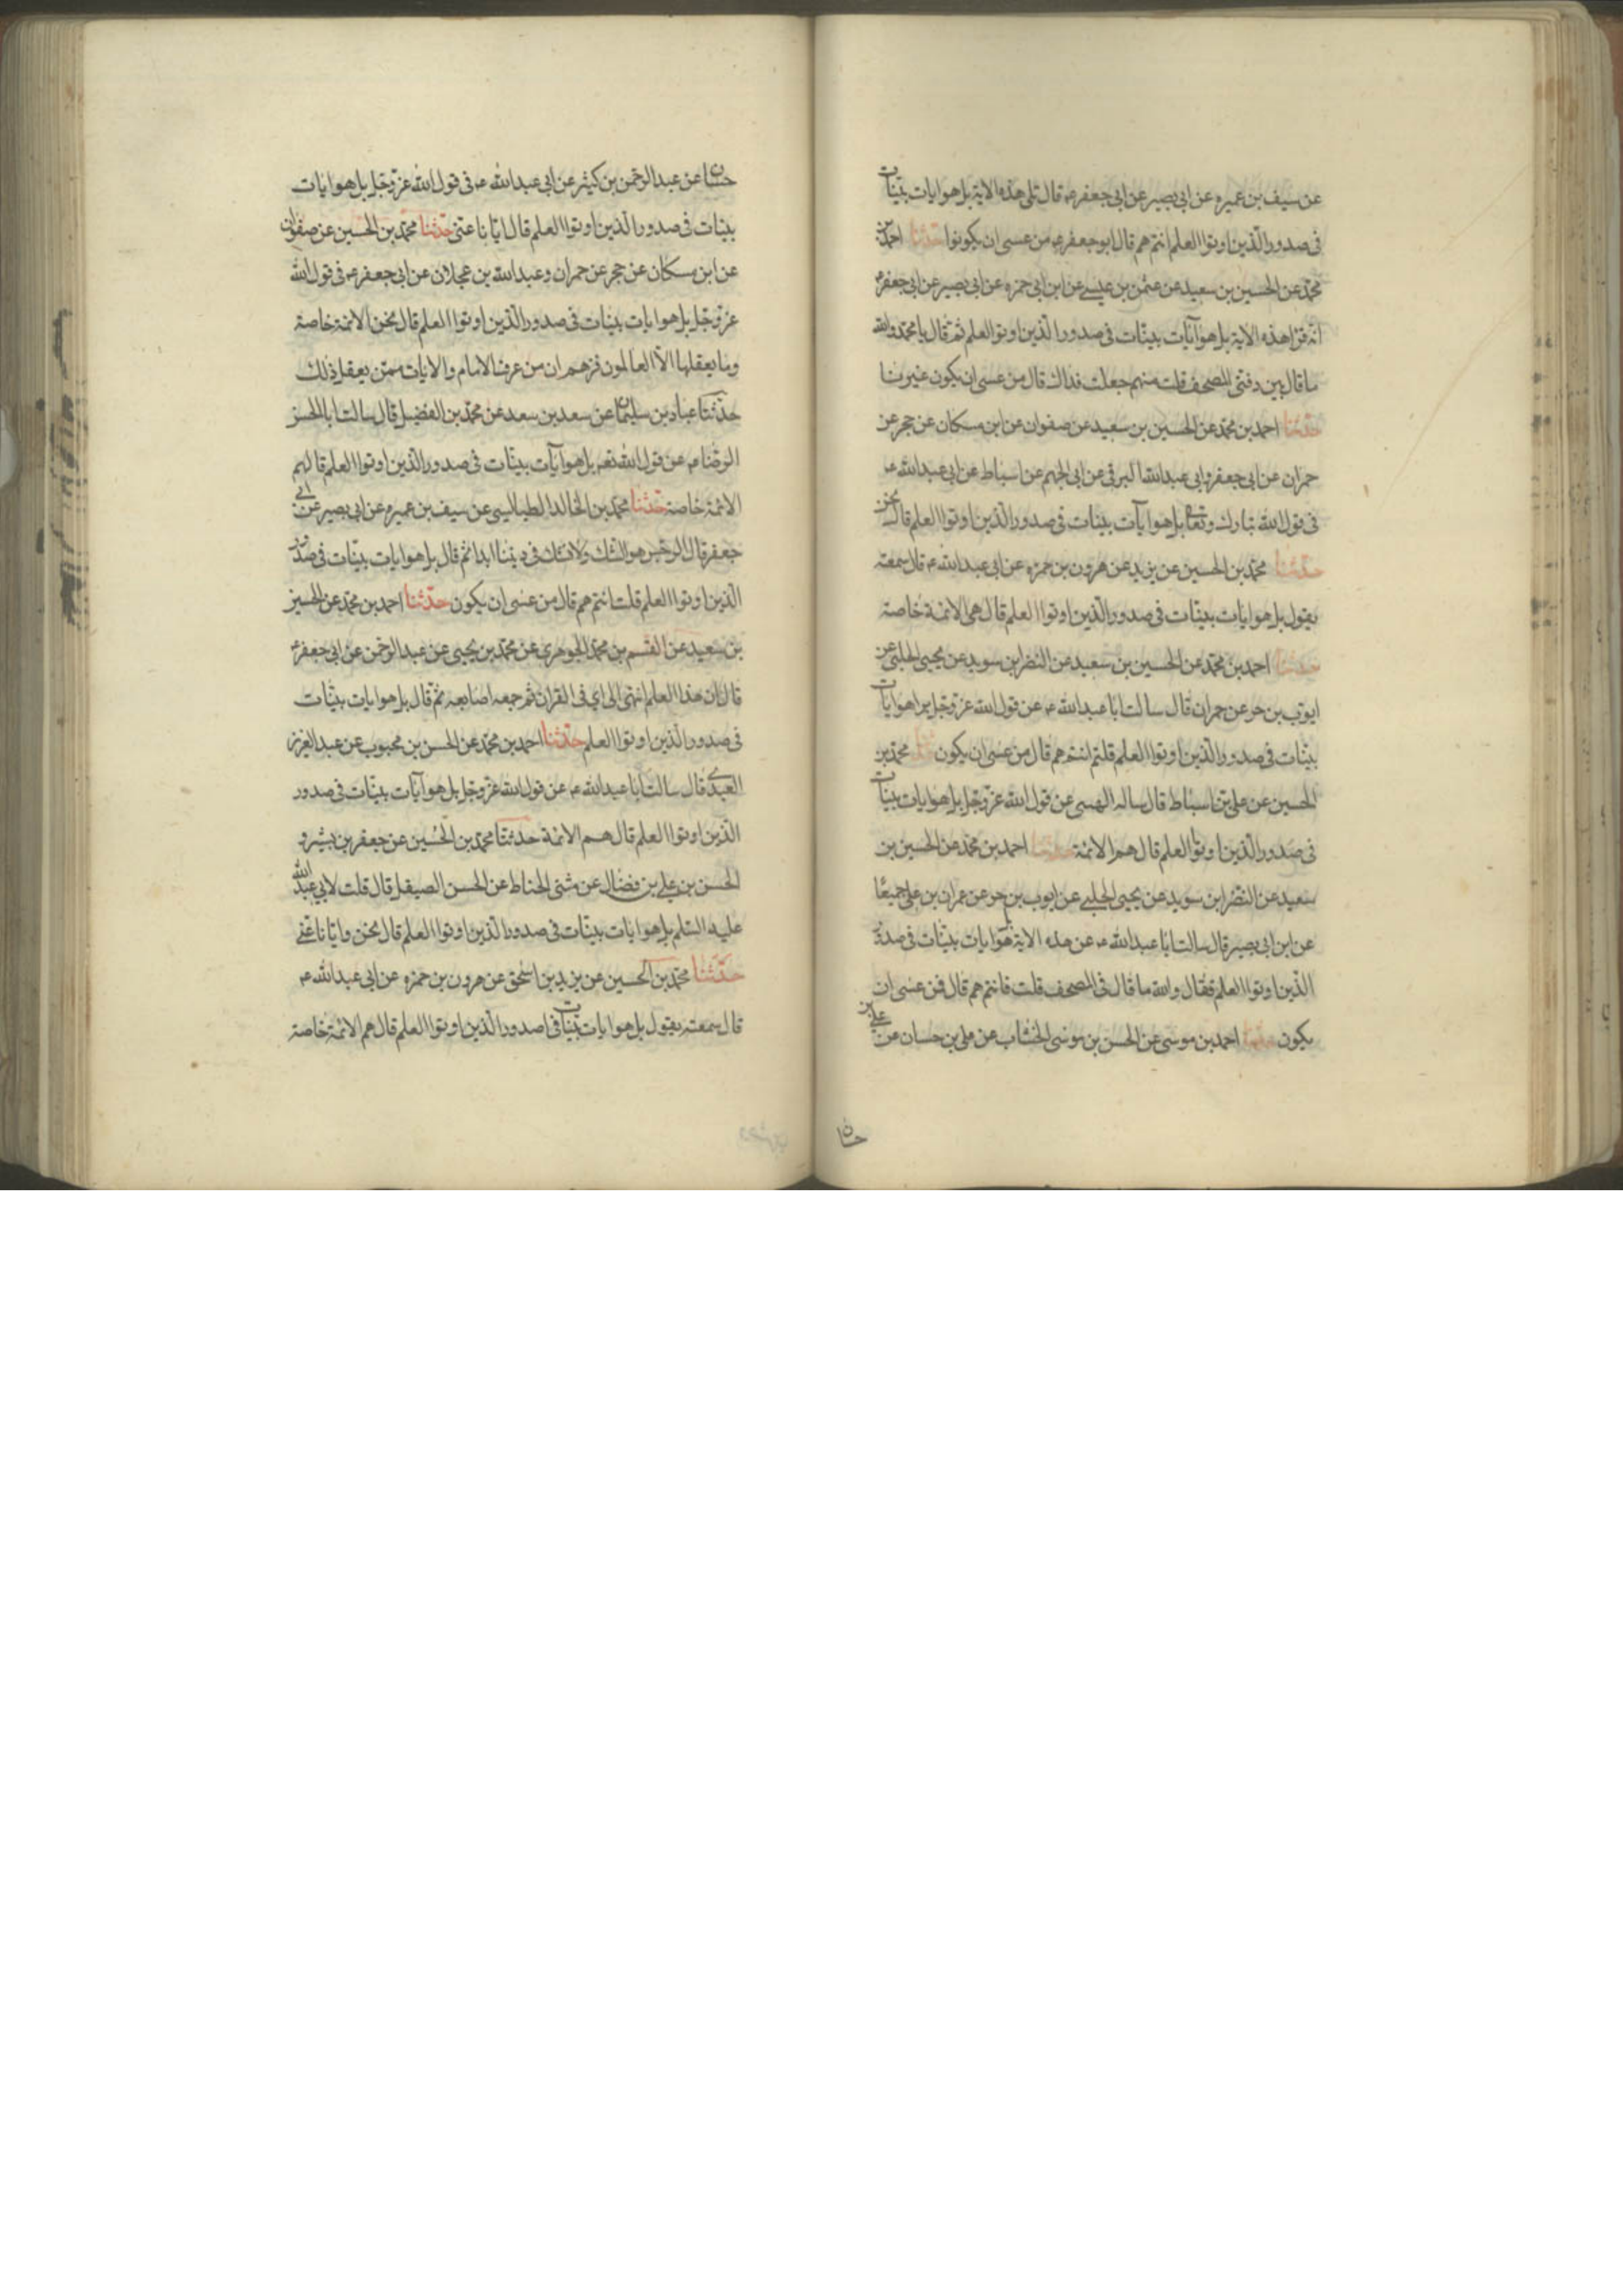 عن سيف بن عميره عن ابى بصير عن ابى جعفر ع قال تلى هذه الاية بل هو ايات بيّنات
فى صدور الّذين اوتوا العلم انتم هم قال ابو جعفر ع من عسى ان يكونوا حدثنا احمد بن
محمّد عن الحسين بن سعيد عن عثمن بن عيسى عن ابن ابى حمزه عن ابى بصير عن ابى جعفر ع
انّه قرا هذه الاية بل هو آيات بينّات فى صدور الذين اوتوا العلم ثم قال يا با محمّد والله
ما قال بين دفتى المصحف قلت منهم جعلت فداك قال من عسى ان يكون غيرنا
حدّثنا احمد بن محمّد عن الحسين بن سعيد عن صفوان عن ابن مسكان عن حجر عن
حمران عن ابى جعفر وابى عبدالله البرقى عن ابى الجهم عن اسباط عن ابى عبدالله ع
فى قول الله تبارك وتعالى بل هو آيات بينات فى صدور الذين اوتوا العلم قال نحن
حدّثنا محمّد بن الحسين عن يزيد عن هرون بن حمزه عن ابى عبدالله ع قال سمعته
يقول بل هو ايات بينّات فى صدور الّذين اوتوا العلم قال هى الائمة خاصة
حدثنا احمد بن محمّد عن الحسين بن سعيد عن النضر بن سويد عن يحيى الحلبى عن
ايوب بن حر عن حمران قال سالت ابا عبدالله ع عن قول الله عزّ وجلّ بل هو ايات
بينّات فى صدور الّذين اوتوا العلم قلتم انتم هم قال من عسى ان يكون حدثنا محمّد بن
الحسين عن على بن اسباط قال ساله الهيتى عن قول الله عزّ وجلّ بل هو ايات بينات
فى صدور الّذين اوتوا العلم قال هم الائمّة حدثنا احمد بن محمّد عن الحسين بن
سعيد عن النضر ابن سويد عن يحيى الحلبى عن ايوب بن حر عن عمران بن على جميعًا
عن ابن ابى بصير قال سالت ابا عبدالله ع عن هذه الاية هو ايات بينّات فى صدور
الّذين اوتوا العلم فقال والله ما قال فى المصحف قلت فانتم هم قال فمن عسى ان
يكون حدثنا احمد بن موسى عن الحسن بن موسى الخشاب عن على بن حسان عن
حسان عن عبد الرحمن بن كثير عن ابى عبدالله ع فى قول الله عزّ وجلّ بل هو ايات
بينات فى صدور الذين اوتوا العلم قال ايّانا عنى حدّثنا محمّد بن الحسين عن صفوان
عن ابن مسكان عن حجر عن حمران وعبدالله بن عجلان عن ابى جعفر ع فى قول الله
عزّ وجلّ بل هو ايات بينات فى صدور الّذين اوتوا العلم قال نحن الائمة خاصة
وما يعقلها الّا العالمون فزعم ان من عرف الامام والايات ممّن يعقل ذلك
حدّثنا عباد بن سليمان عن سعد بن سعد عن محمّد بن الفضيل قال سالت ابا الحسن
الرضا ع عن قول الله تعه بل هو آيات بينّات فى صدور الّذين اوتوا العلم قال هم
الائمّة خاصة حدّثنا محمّد بن الخالد الطيالسى عن سيف بن عميره عن ابى بصير عن ابى
جعفر قال الرجس هو الشك ولا نشك فى ديننا ابدا ثم قال بل هو ايات بينّات فى صدور
الّذين اوتوا العلم قلت انتم هم قال من عسى ان يكون حدّثنا احمد بن محمّد عن الحسين
بن سعيد عن القسم بن محمّد الجوهرى عن محمّد بن يحيى عن عبد الرحمن عن ابى جعفر ع
قال ان هذا العلم انتهى الى اي فى القران ثم جمع اصابعه ثم قال بل هو ايات بينّات
فى صدور الّذين اوتوا العلم حدّثنا احمد بن محمّد عن الحسن بن محبوب عن عبد العزيز
العبدى قال سالت ابا عبدالله ع عن قول الله عزّ وجلّ بل هو آيات بينّات فى صدور
الّذين اوتوا العلم قال هم الائمّة حدثنا محمّد بن الحسين عن جعفر بن بشير و
الحسن بن على بن فضال عن مثنى الحناط عن الحسن الصيقل قال قلت لابى عبدالله
عليه السّلم بل هو ايات بينّات فى صدور الّذين اوتوا العلم قال نحن وايّانا عنى
حدّثنا محمّد بن الحسين عن يزيد بن اسحق عن هرون بن حمزه عن ابى عبدالله ع
قال سمعته يقول بل هو ايات بيّنات فى صدور الّذين اوتوا العلم قال هم الائمّة خاصة